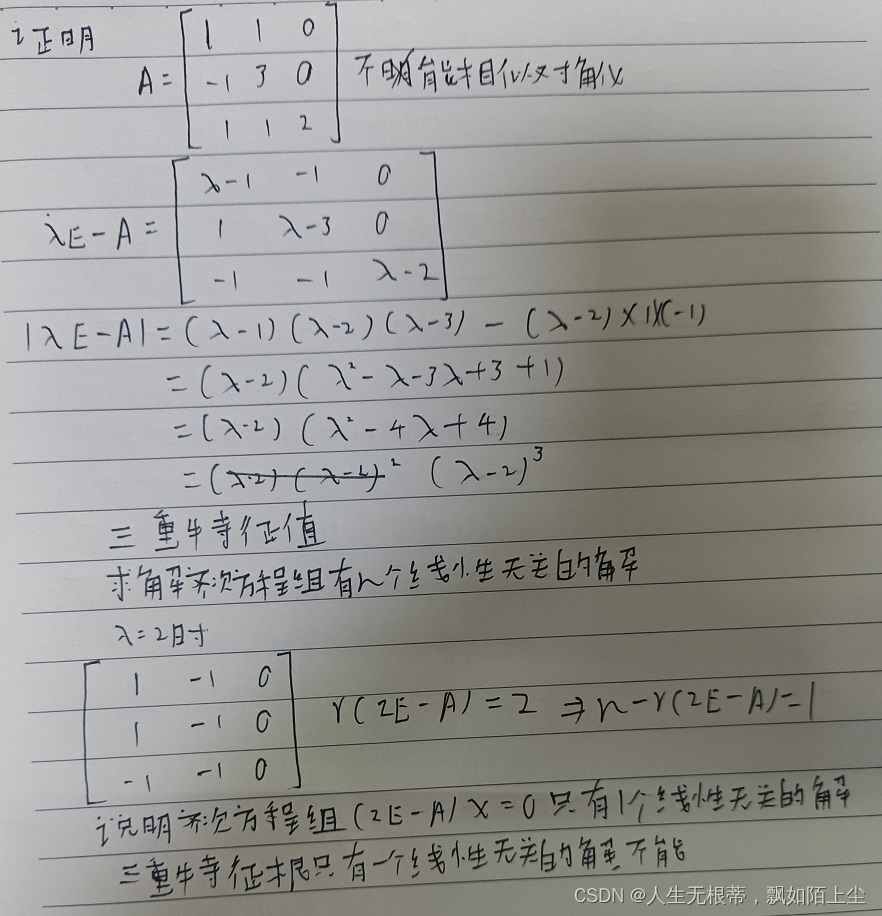 证明
A = [ 1 1 0
-1 3 0 不可能相似对角化
1 1 2 ]
λE-A = [ λ-1 -1 0
1 λ-3 0
-1 -1 λ-2 ]
|λE-A| = (λ-1)(λ-2)(λ-3) - (λ-2)×1×(-1)
= (λ-2)(λ²-λ-3λ+3+1)
= (λ-2)(λ²-4λ+4)
= (λ-2)(λ-2)² (λ-2)³
三重特征值
求解齐次方程组有n个线性无关的解
λ=2时
[ 1 -1 0
1 -1 0 r(2E-A)=2 ⇒ n-r(2E-A)=1
-1 -1 0 ]
说明齐次方程组(2E-A)x=0只有1个线性无关的解
三重特征根只有一个线性无关的解不能
CSDN @人生无根蒂，飘如陌上尘